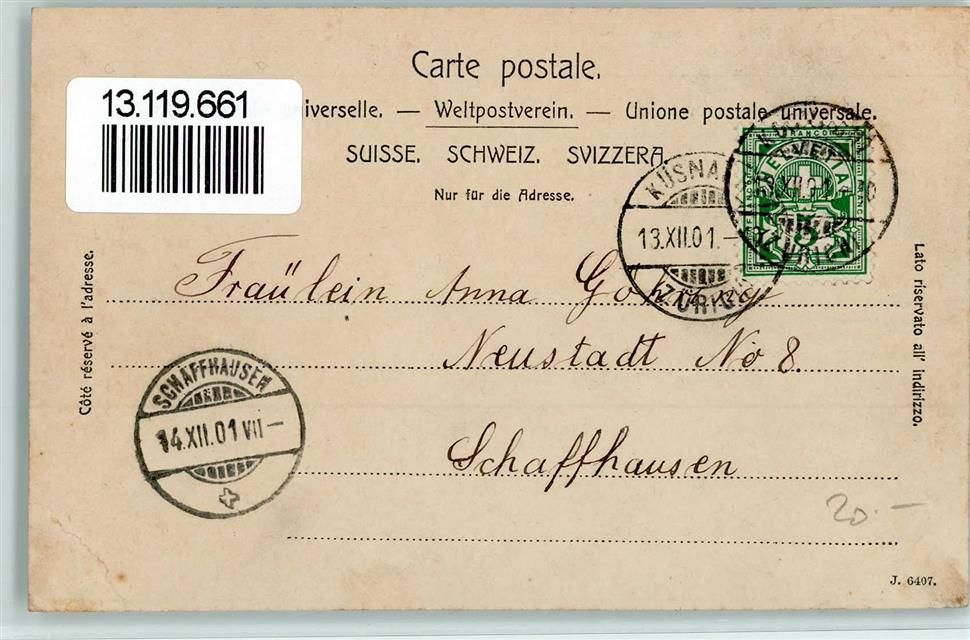 Carte postale.
13.119.661
iverselle. — Weltpostverein. — Unione postale universale.
SUISSE. SCHWEIZ. SVIZZERA.
Nur für die Adresse.
KÜSNA
13.XII.01.–
ZÜRICH
FRANCO
HELVETIA
5
ZÜRICH
Fräulein Anna
Neustadt No 8.
Schaffhausen
Côté réservé à l'adresse.
Lato riservato all' indirizzo.
SCHAFFHAUSEN
14.XII.01 VII–
20.–
J. 6407.